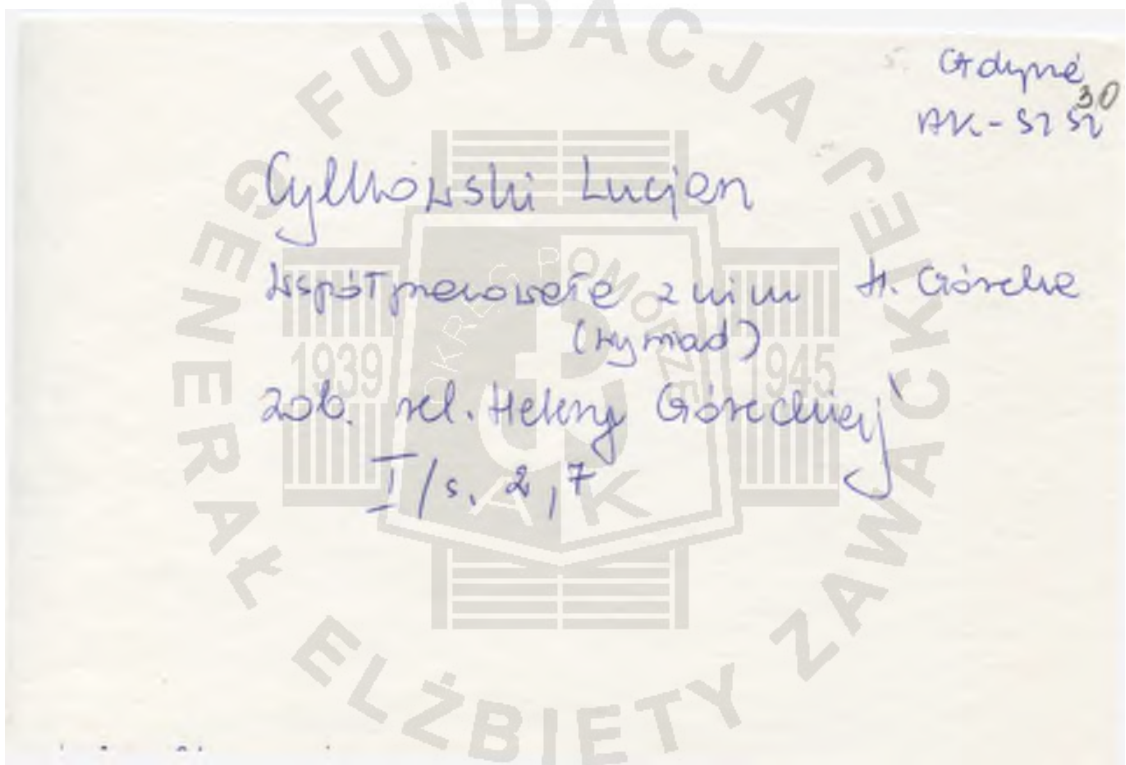 Gdynia
30
AK-SzSz
Cylkowski Lucjan
współpracowała z nim H. Górecka
(wywiad)
zob. rel. Heleny Góreckiej
I/s. 2,7
FUNDACJA
GENERAŁ ELŻBIETY ZAWACKIEJ
OKRĘG POMORZE
1939
1945
AK